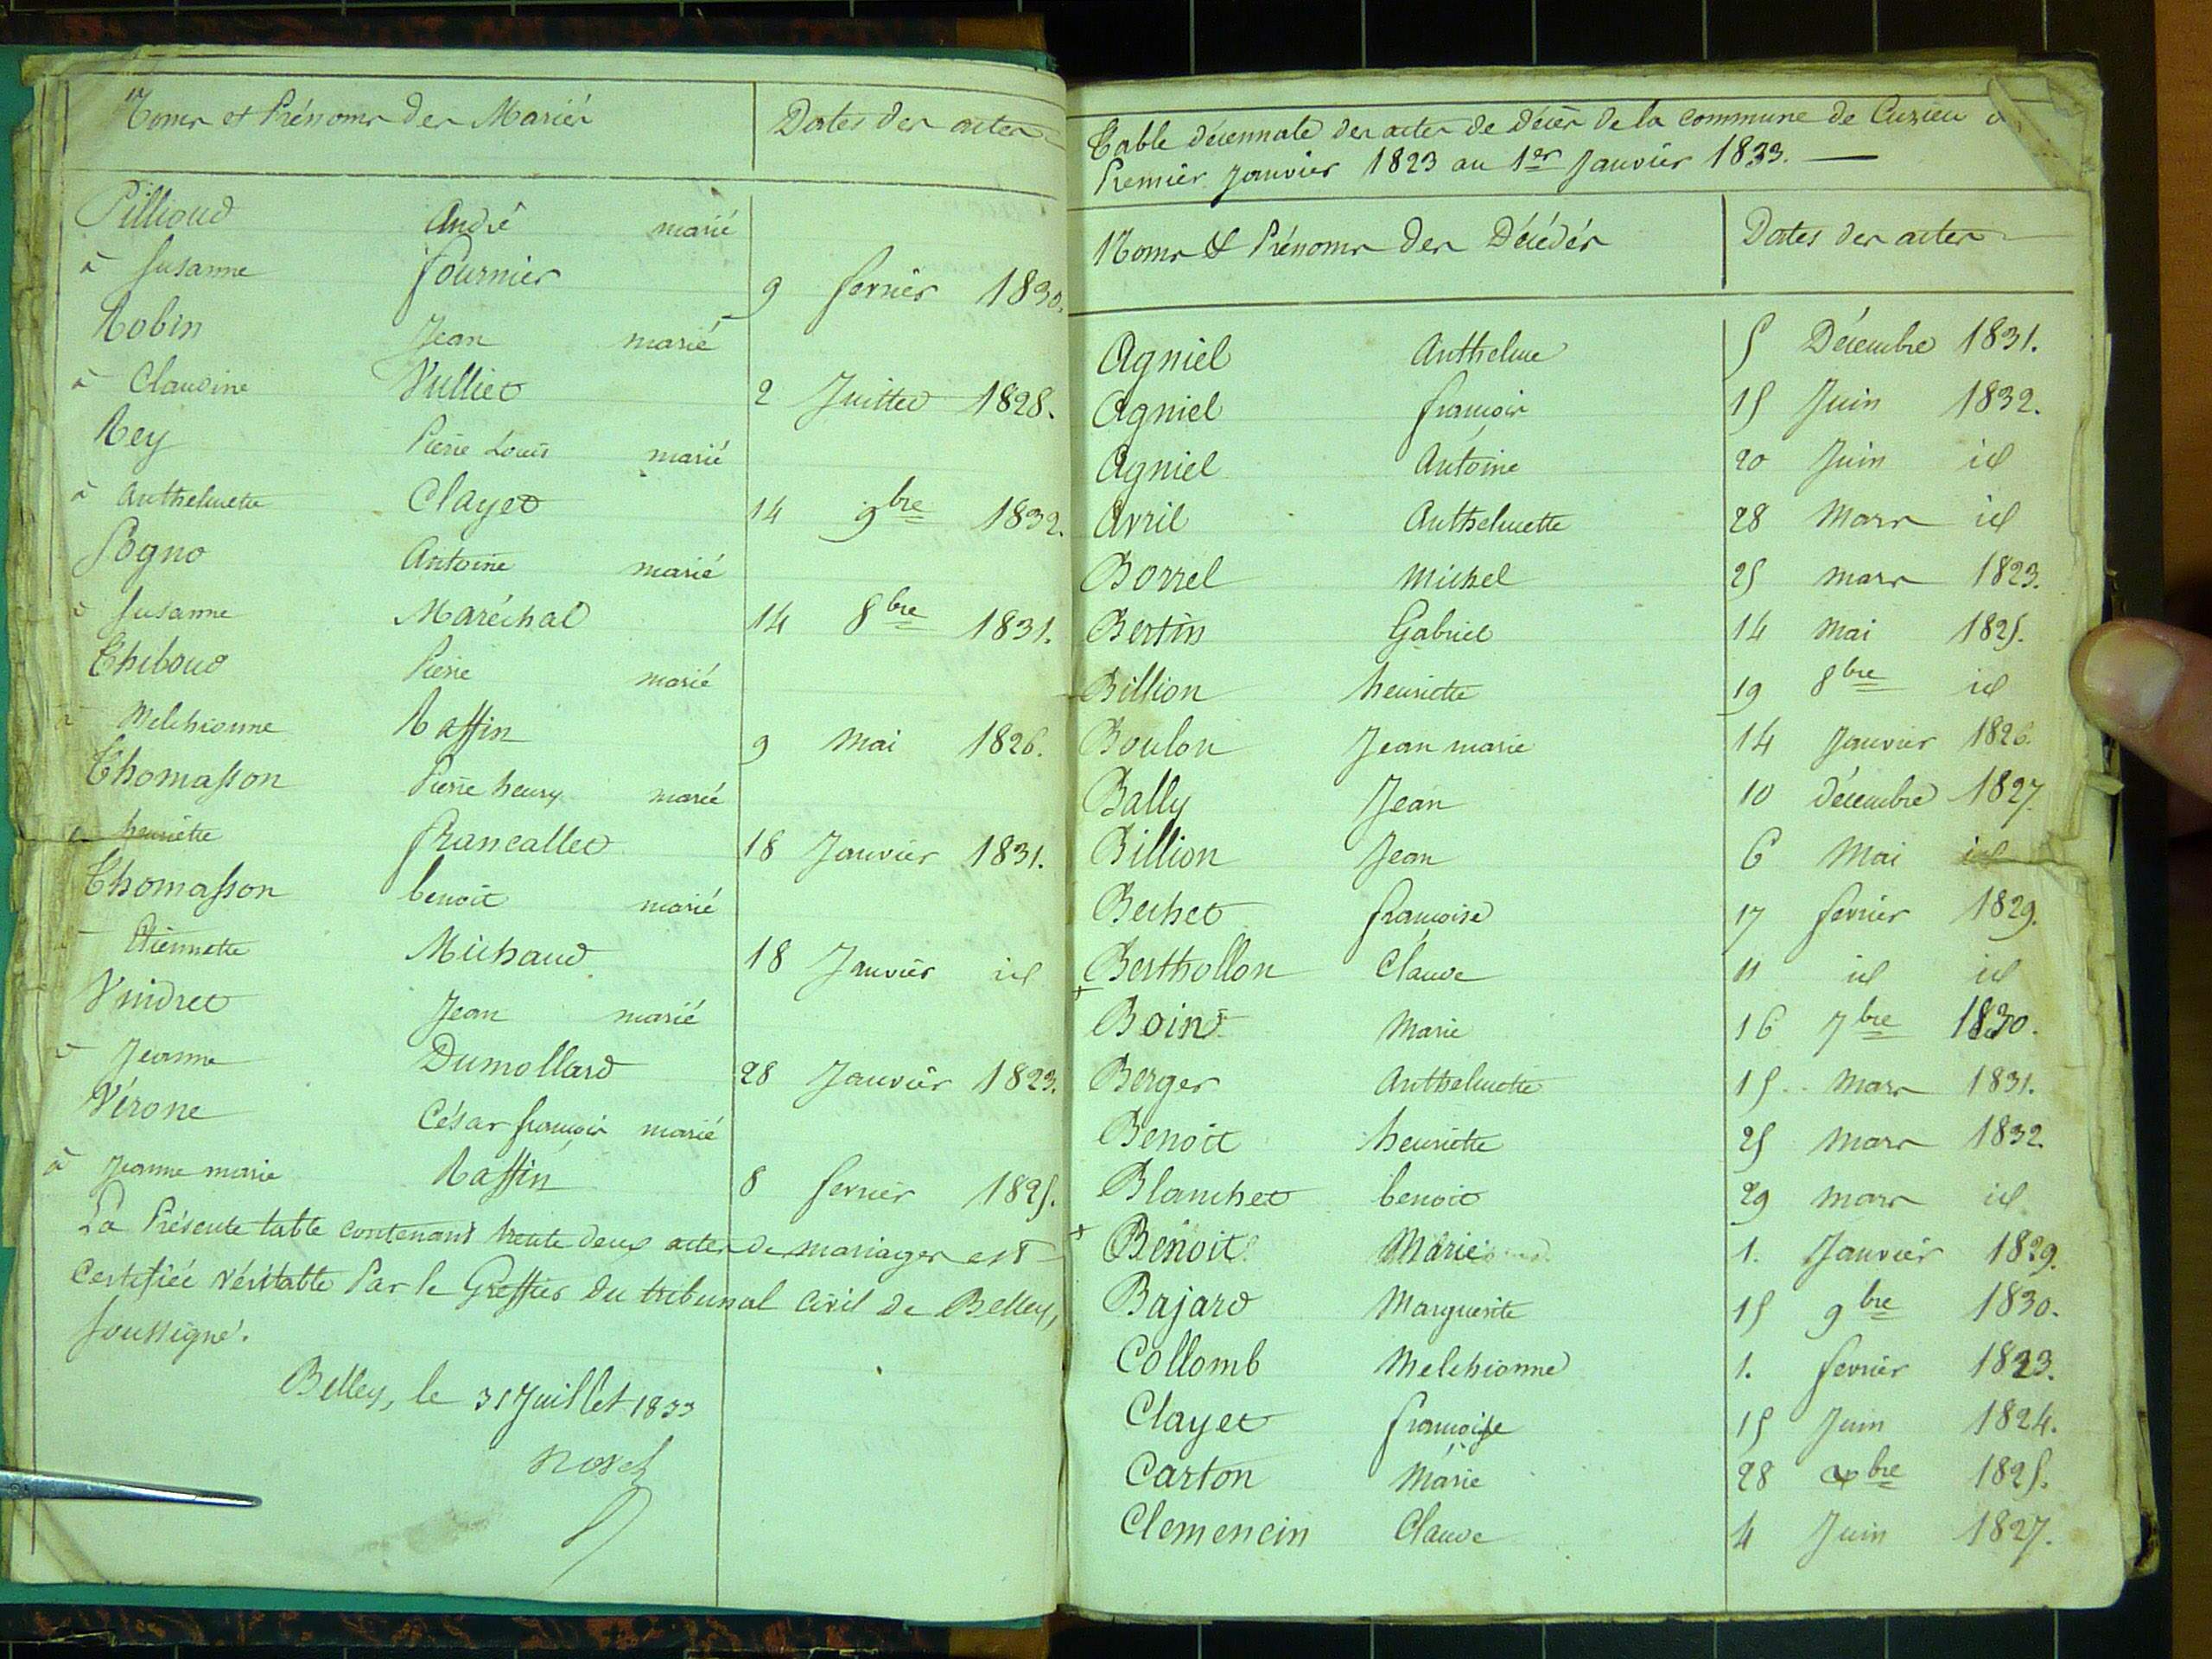 Noms et Prénoms des Mariés Dates des actes
Pillioud André marié
à Susanne fournier 9 fevrier 1830.
Robin Jean marié
à Claudine Vulliet 2 Juillet 1828.
Rey Pierre Louis marié
à Anthelmette Clayet 14 9bre 1832.
Sogno Antoine marié
à Susanne Maréchal 14 8bre 1831.
Thiboud Pierre marié
à Melchionne Raffin 9 Mai 1826.
Thomasson Pierre henry marié
à henriette francallet 18 Janvier 1831.
Thomasson benoit marié
à Etiennette Michaud 18 Janvier id
Vuidret Jean marié
à Jeanne Dumollard 28 Janvier 1823.
Vérone César françois marié
à Jeanne marie Raffin 8 fevrier 1825.
La Présente table contenant trente deux actes de mariages est
Certifiée véritable Par le Greffier du tribunal Civil de Belley,
soussigné.
Belley, le 31 Juillet 1833
Table décennale des actes de Décès de la commune de Cuzieu
Premier Janvier 1823 au 1er Janvier 1833.
Noms & Prénoms des Décédés Dates des actes
Agniel Anthelme 5 Décembre 1831.
Agniel françois 15 Juin 1832.
Agniel Antoine 20 Juin id
Avril Anthelmette 28 Mars id
Borrel Michel 25 mars 1823.
Bertin Gabriel 14 Mai 1825.
Billion henriette 19 8bre id
Boulon Jean marie 14 Janvier 1826.
Bally Jean 10 décembre 1827
Billion Jean 6 Mai id
Bechet françoise 17 fevrier 1829.
Berthollon Claude 11 id id
Boint Marie 16 7bre 1830.
Berger Anthelmette 15 Mars 1831.
Benoit henriette 25 Mars 1832.
Blanchet benoit 29 mars id
Benoit Marie 1. Janvier 1829.
Bajard Marguerite 15 9bre 1830.
Collomb Melchionne 1. fevrier 1823.
Clayet françoise 15 Juin 1824.
Carton Marie 28 xbre 1825.
Clemencin Claude 4 Juin 1827.